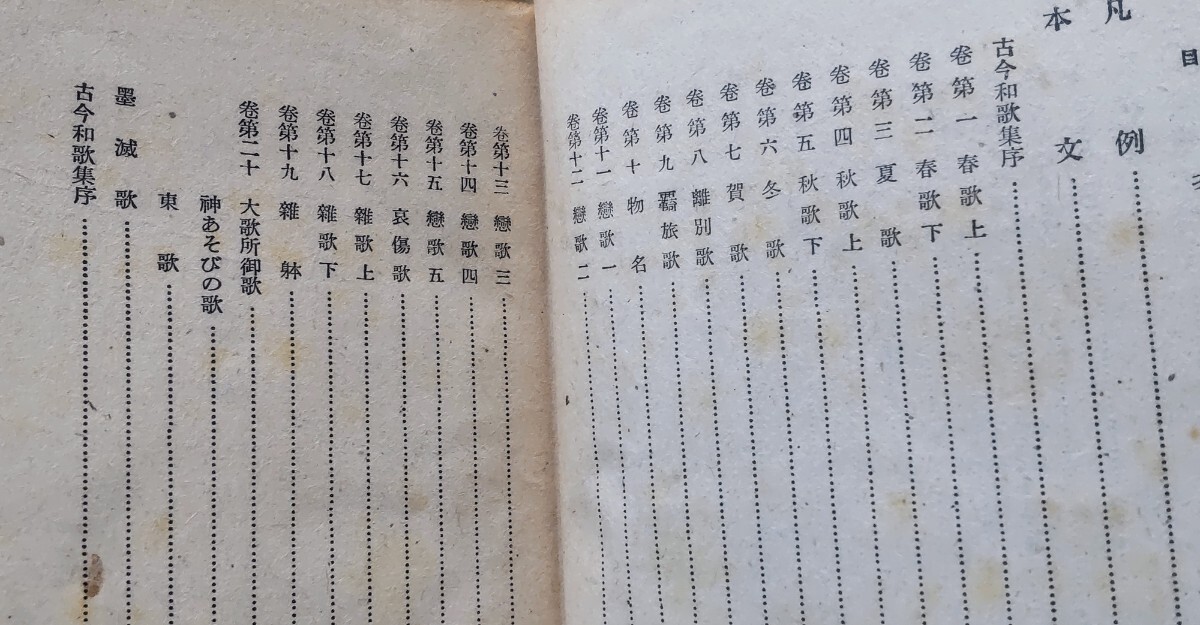 目
凡例
本文
古今和歌集序
卷第一 春歌上
卷第二 春歌下
卷第三 夏歌
卷第四 秋歌上
卷第五 秋歌下
卷第六 冬歌
卷第七 賀歌
卷第八 離別歌
卷第九 羇旅歌
卷第十 物名
卷第十一 戀歌一
卷第十二 戀歌二
卷第十三 戀歌三
卷第十四 戀歌四
卷第十五 戀歌五
卷第十六 哀傷歌
卷第十七 雜歌上
卷第十八 雜歌下
卷第十九 雜躰
卷第二十 大歌所御歌
神あそびの歌
東歌
墨滅歌
古今和歌集序